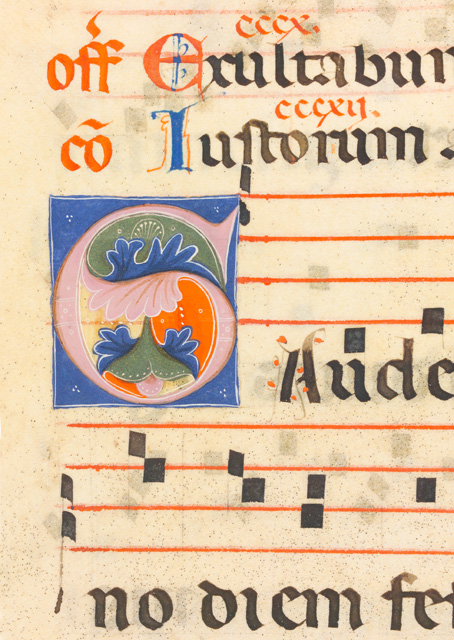 cccx.
off̄ Exultabun
cccxii.
cō Iustorum
GAude
no diem fes